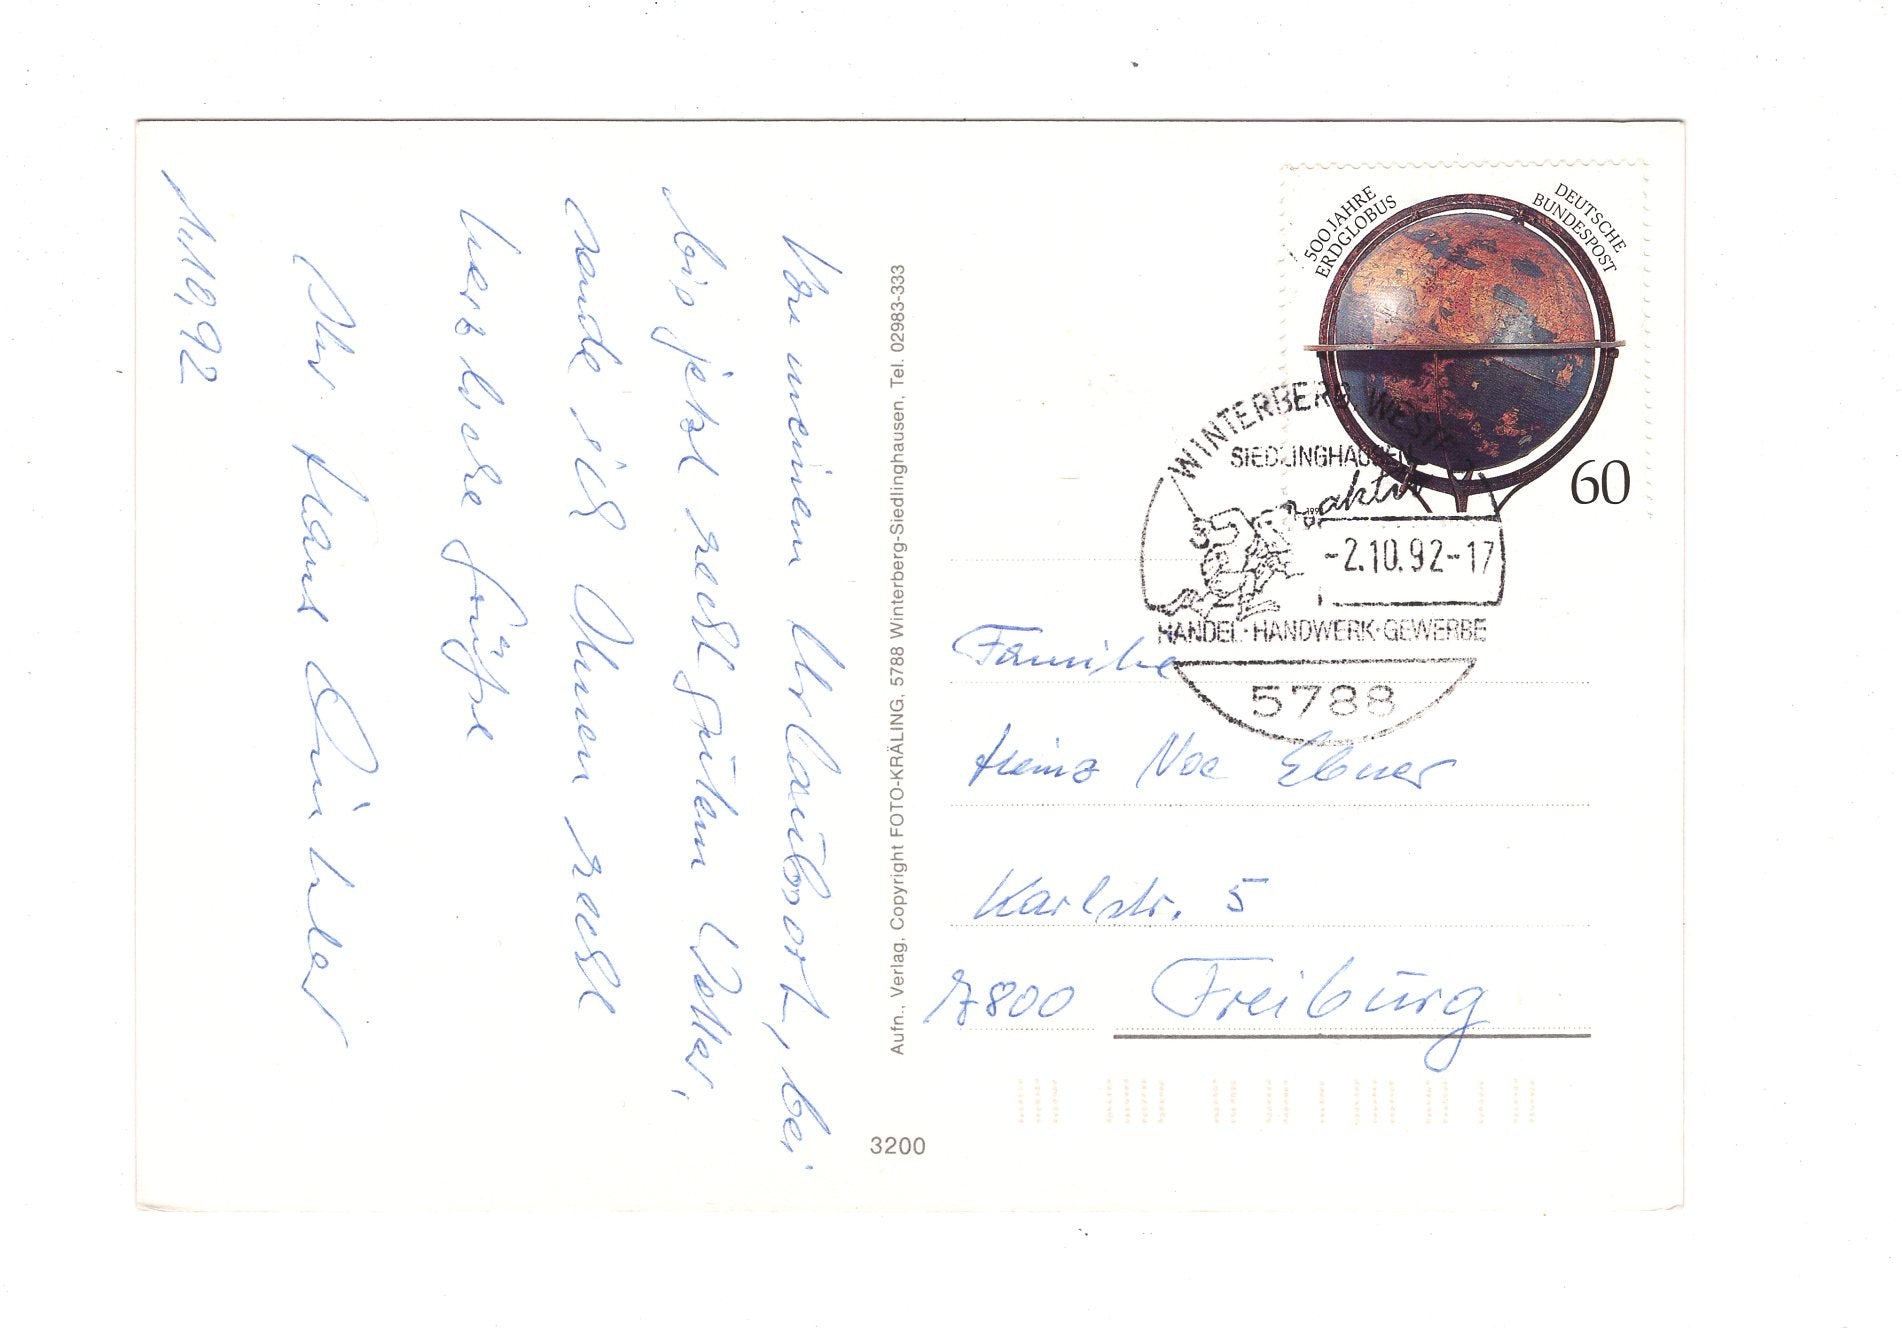 Von meinem Urlaubsort, bei
bis jetzt recht gutem Wetter,
sende ich Ihnen recht
herzliche Grüße
Ihr Hans Günther
1.10.92
Aufn., Verlag, Copyright FOTO-KRÄLING, 5788 Winterberg-Siedlinghausen, Tel. 02983-333
3200
500 JAHRE
ERDGLOBUS
DEUTSCHE
BUNDESPOST
60
WINTERBERG, WESTF
SIEDLINGHAUSEN
aktiv
-2.10.92-17
HANDEL·HANDWERK·GEWERBE
5788
Familie
Heinz Noe Ebner
Karlstr. 5
7800 Freiburg